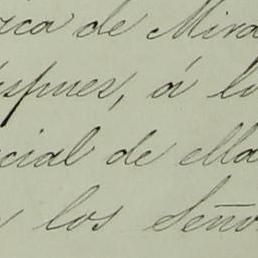 rca de Mira
spues, á lo
cial de ella
los Seño